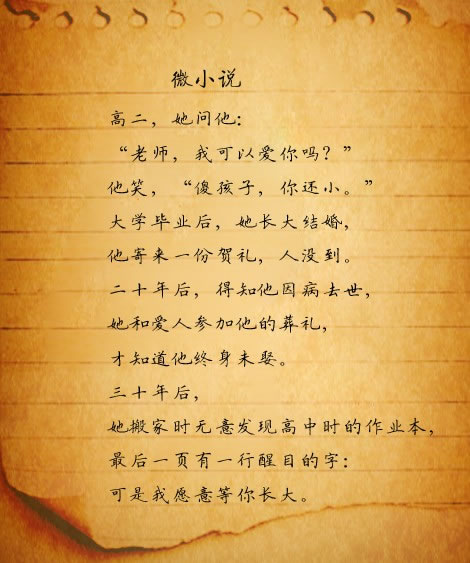 微小说
高二，她问他：
“老师，我可以爱你吗？”
他笑，“傻孩子，你还小。”
大学毕业后，她长大结婚，
他寄来一份贺礼，人没到。
二十年后，得知他因病去世，
她和爱人参加他的葬礼，
才知道他终身未娶。
三十年后，
她搬家时无意发现高中时的作业本，
最后一页有一行醒目的字：
可是我愿意等你长大。